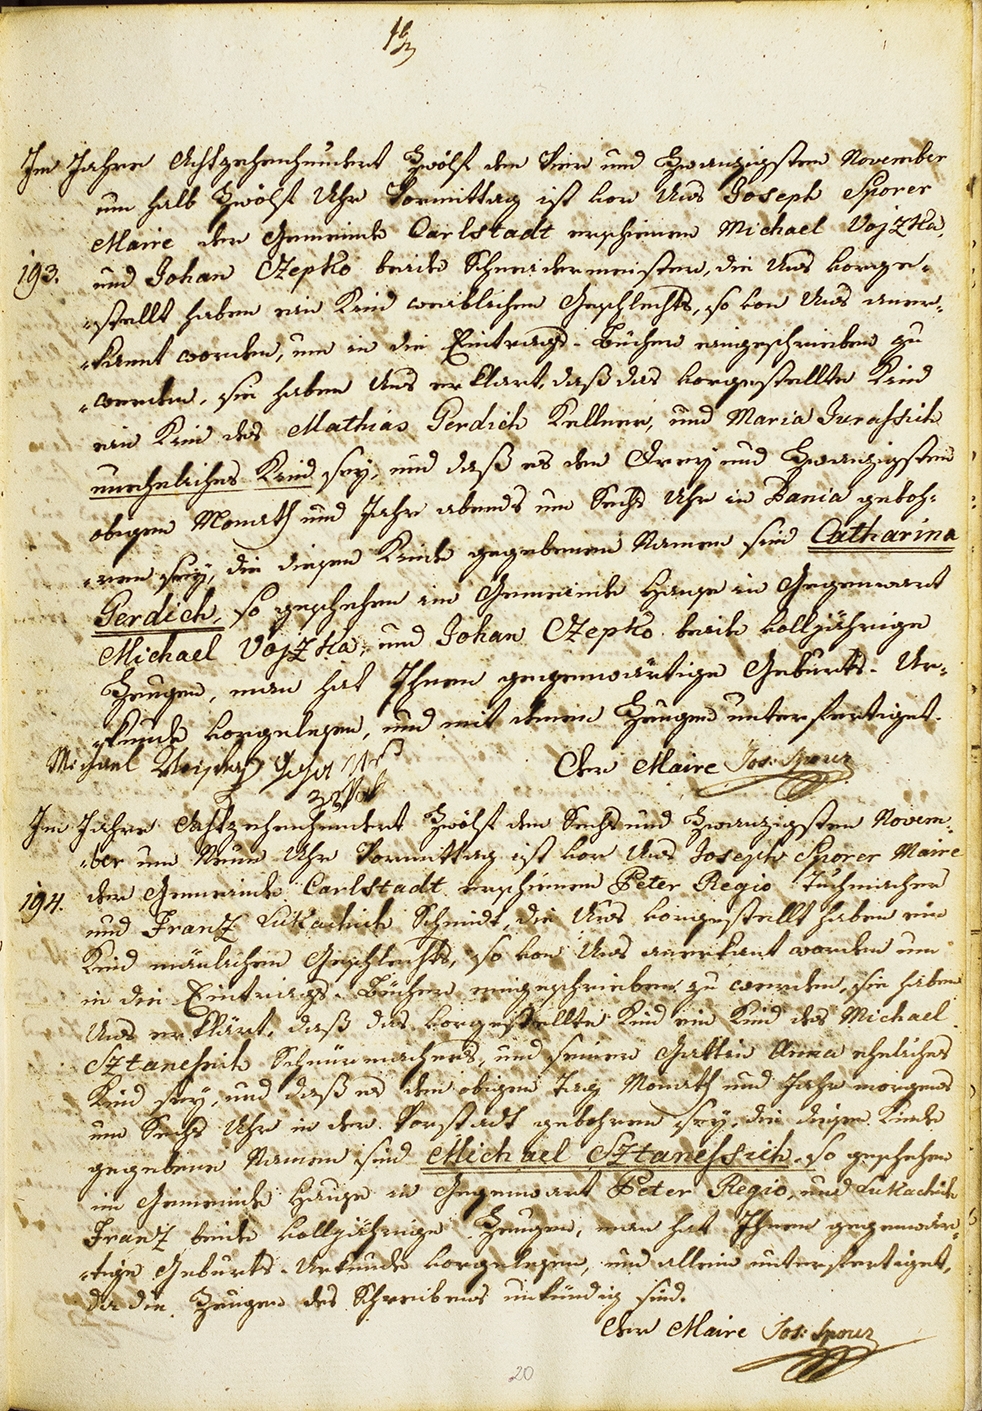 Im Jahre Achtzehenhundert Zwölf den Vier und Zwanzigsten November
um halb Zwölf Uhr Vormittag ist vor Uns Joseph Sporer
Maire der Gemeinde Carlstadt erschienen Michael Vojzka,
193.
und Johan Czepko beide Schneidermeister, die Uns vorge-
-stellt haben ein Kind weiblichen Geschlechts, so von Uns aner-
-kannt worden, um in die Eintrags-Bücher eingeschrieben zu
-werden, sie haben Uns erklärt, daß das vorgestellte Kind
ein Kind des Mathias Perdich Kellner, und Maria Jurassich
uneheliches Kind sey, und daß es den Drey und Zwanzigsten
obigen Monath und Jahr abends um Sechs Uhr in Bania geboh-
-ren sey, die diesem Kinde gegebenen Namen sind Catharina
Perdich, so geschehen im Gemeinde Hause in Gegenwart
Michael Vojzka, und Johan Czepko beide volljährige
Zeugen, man hat Ihnen gegenwärtige Geburts-Ur-
-kunde vorgelesen, und mit denen Zeugen unterfertiget.
Michael
Der Maire Jos: Sporer
Im Jahre Achtzehenhundert Zwölf den Sechs und Zwanzigsten Novem-
-ber um Neun Uhr Vormittag ist vor Uns Joseph Sporer Maire
194.
der Gemeinde Carlstadt erschienen Peter Regio Tuchmacher
und Franz Lukachich Schmidt, die Uns vorgestellt haben ein
Kind mänlichen Geschlechts, so von Uns anerkant worden um
in die Eintrags-Bücher eingeschrieben zu werden, sie haben
Uns erklärt, daß das vorgestellte Kind ein Kind des Michael
Sztanessich Schnürmachers, und seiner Gattin Anna eheliches
Kind sey, und daß es den obigen Tag Monath und Jahr morgens
um Sechs Uhr in der Vorstadt gebohren sey, die diesem Kinde
gegebene Namen sind Michael Sztanessich, so geschehen
im Gemeinde Hause in Gegenwart Peter Regio, und Lukachich
Franz beide volljährige Zeugen, man hat Ihnen gegenwär-
-tige Geburts-Urkunde vorgelesen, und allein unterfertiget,
da die Zeugen des Schreibens unkündig sind.
Der Maire Jos: Sporer
20